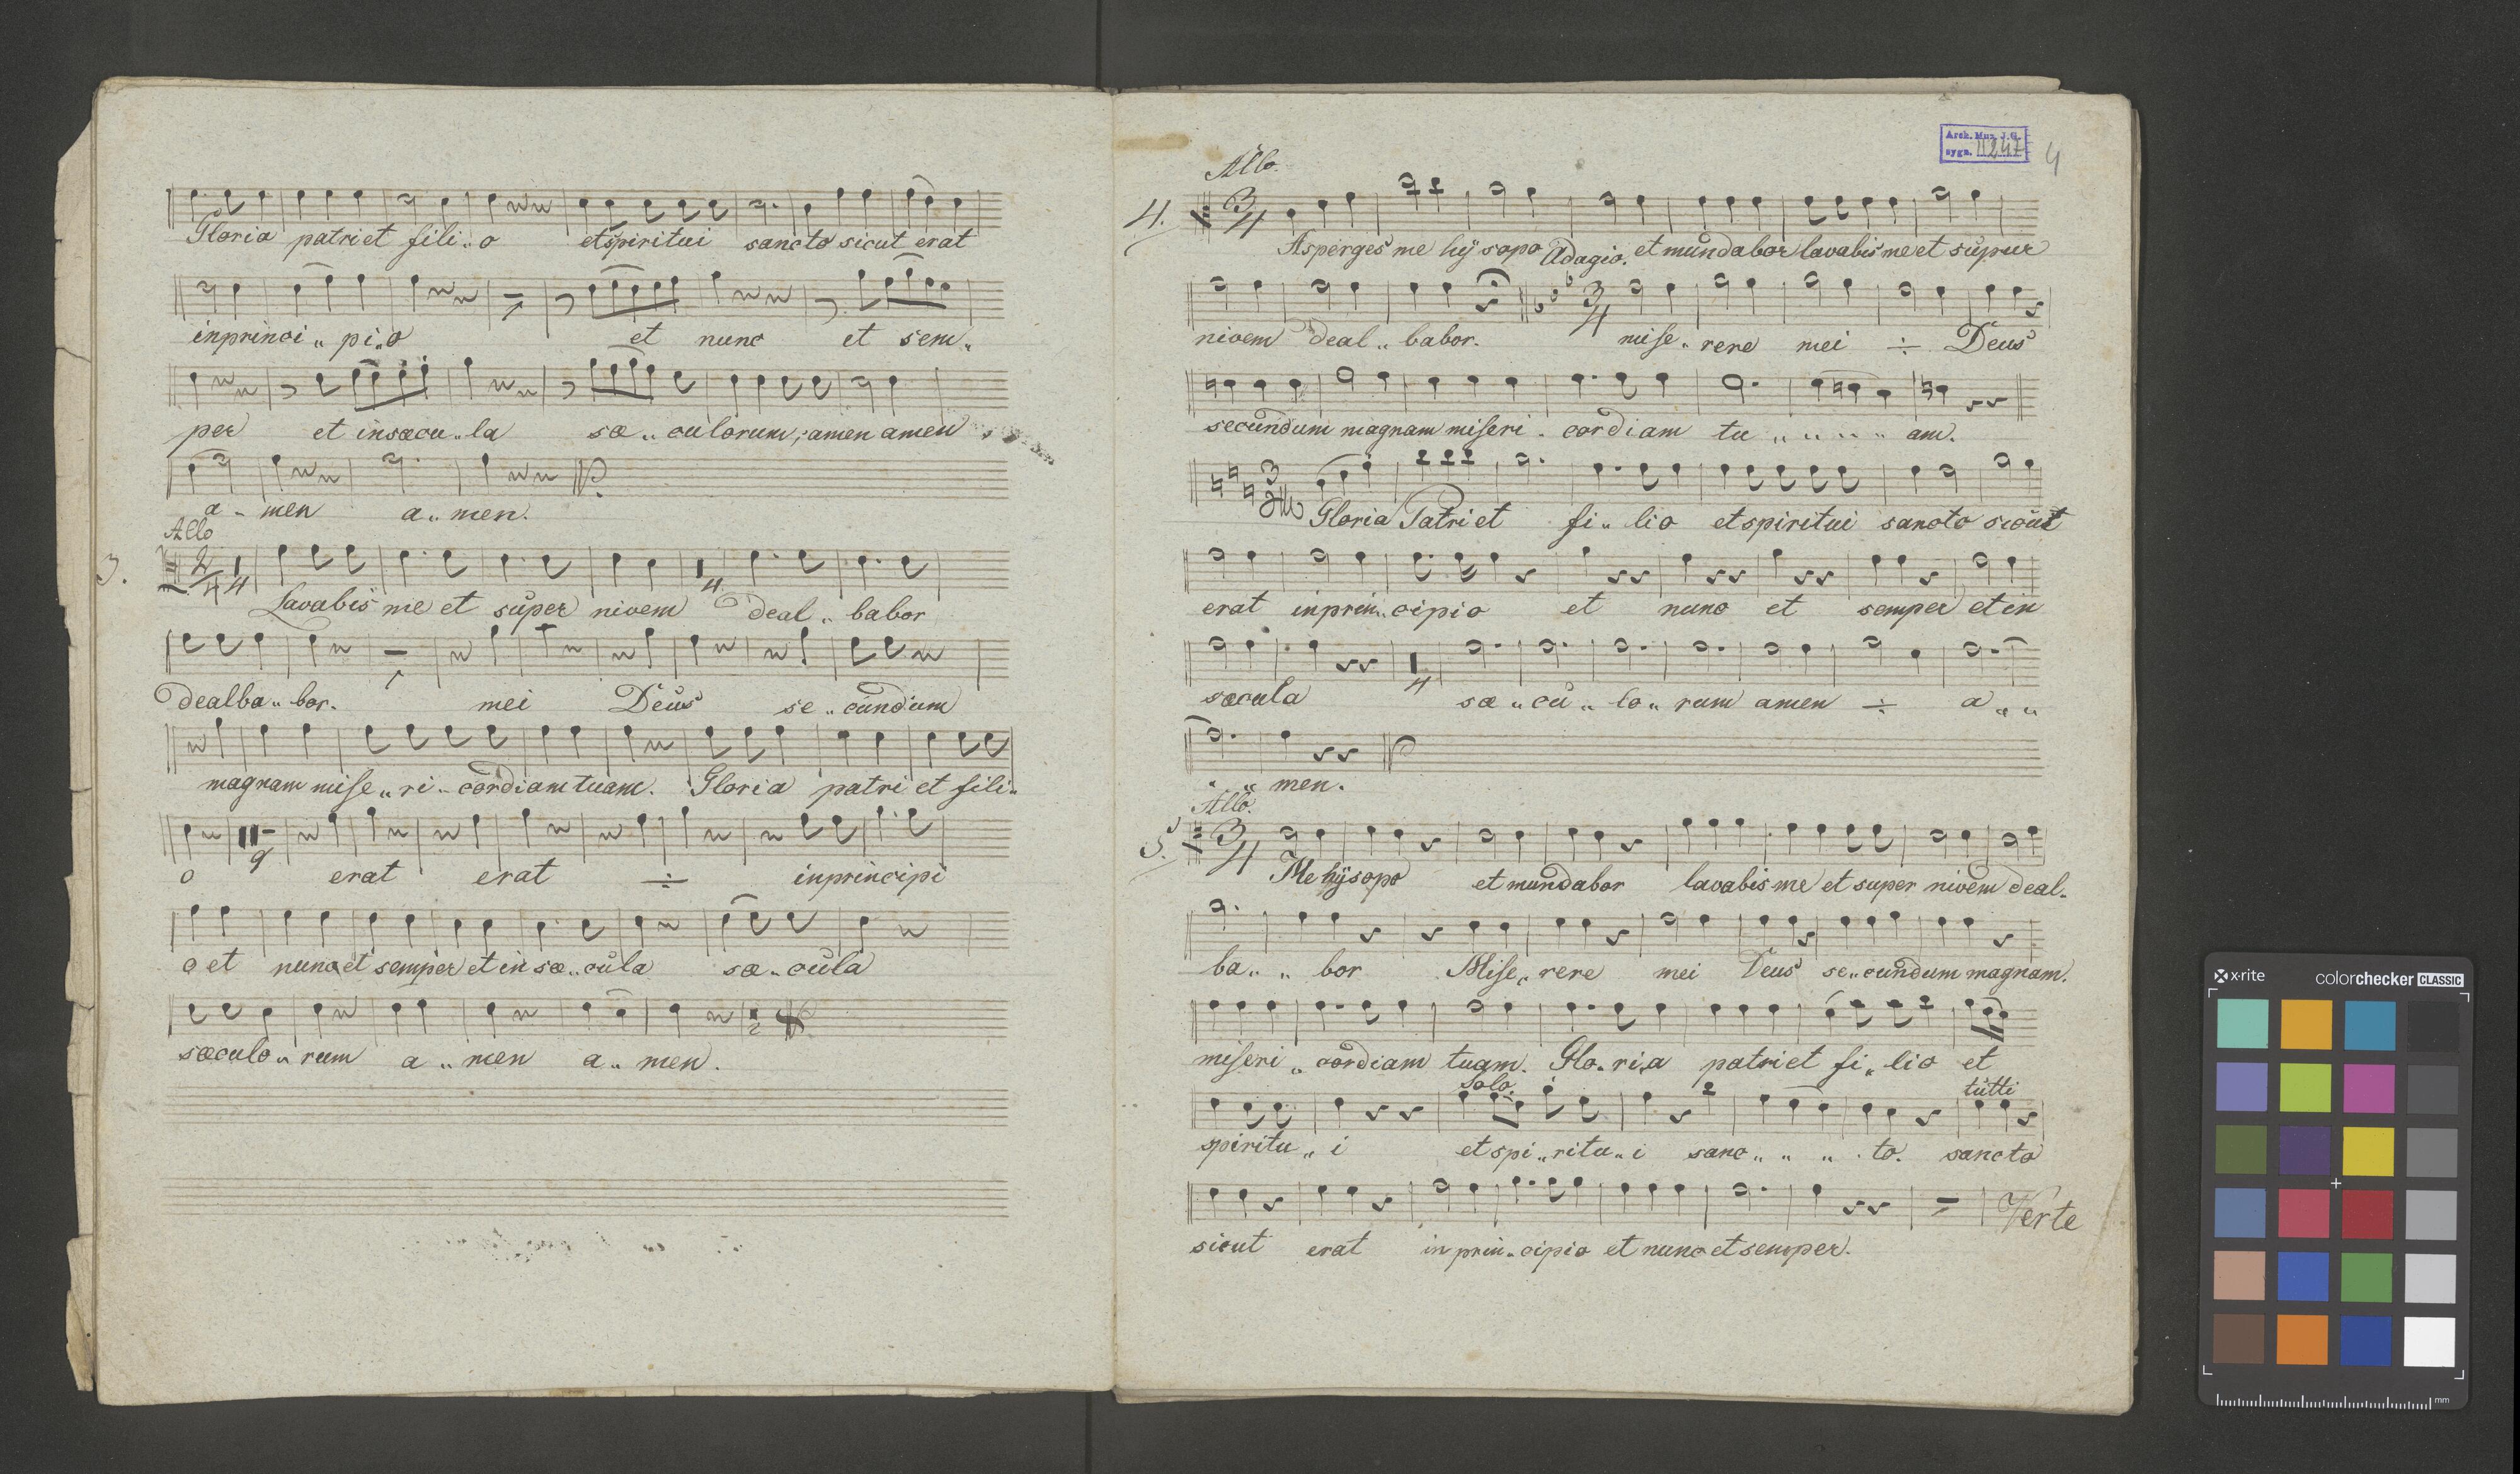 Gloria patri et fili„o et spiritui sancto sicut erat
in princi„pi„o et nunc et sem„
per et in sæcu„la sæ„culorum, amen amen
a„men a„men.
Allo
3. 2/4 4 4
Lavabis me et super nivem deal„babor
dealba„bor. mei Deus se„cundum
magnam mise„ri„cordiam tuam. Gloria patri et fili„
9
o erat erat ÷ in principi
o et nunc et semper et in sæ„cula sæ„cula
2
sæculo„rum a„men a„men.
Arch. Muz. J.G.
sygn. II 247
4
Allo.
4. 3/4
Asperges me hÿsopo Adagio. et mundabor lavabis me et super
3/4
nivem deal„babor. mise„rere mei ÷ Deus
secundum magnam miseri„cordiam tu„„„„am.
3 Allo
Gloria Patri et fi„lio et spiritui sancto sicut
erat in prin„cipio et nunc et semper et in
4
sæcula sæ„cu„lo„rum amen ÷ a„„
„„men.
Allo.
5. 3/4
Me hÿsopo et mundabor lavabis me et super nivem deal„
ba„„bor Mise„rere mei Deus se„cundum magnam.
miseri„cordiam tuam. Glo„ri„a patri et fi„lio et
Solo. tutti
spiritu„i et spi„ritu„i sanc„„„to. sancto
Verte
sicut erat in prin„cipio et nunc et semper.
x·rite colorchecker CLASSIC
mm